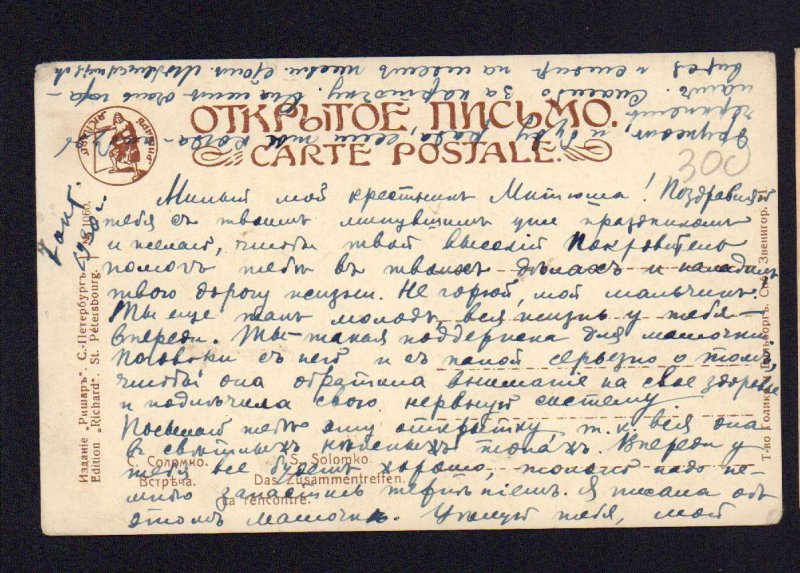 ОТКРЫТОЕ ПИСЬМО.
CARTE POSTALE.
300
Милый мой крестникъ Митюша! Поздравляю
тебя съ твоимъ минувшимъ уже праздникомъ
и желаю, чтобы твой высокій Покровитель
помогъ тебѣ въ твоихъ дѣлахъ и наладилъ
твою дорогу жизни. Не горюй, мой мальчикъ.
Ты еще такъ молодъ, вся жизнь у тебя
впереди. Ты такая поддержка для мамочки.
Поговори съ ней и съ папой серьезно о томъ,
чтобы она обратила вниманіе на свое здоровье
и подлѣчила свою нервную систему.
Посылаю тебѣ эту открытку т. к. вся она
въ свѣтлыхъ нѣжныхъ тонахъ. Впереди у
тебя все будетъ хорошо, только надо не-
много запастись терпѣніемъ. Я писала объ
этомъ мамочкѣ. Цѣлую тебя, мой
Изданіе „Ришаръ“. С.-Петербургъ.
Edition „Richard“. St. Pétersbourg.
С. Соломко.
Встрѣча.
S. Solomko.
Das Zusammentreffen.
La rencontre.
Т-во Голике и Вильборгъ. Спб. Звенигор.